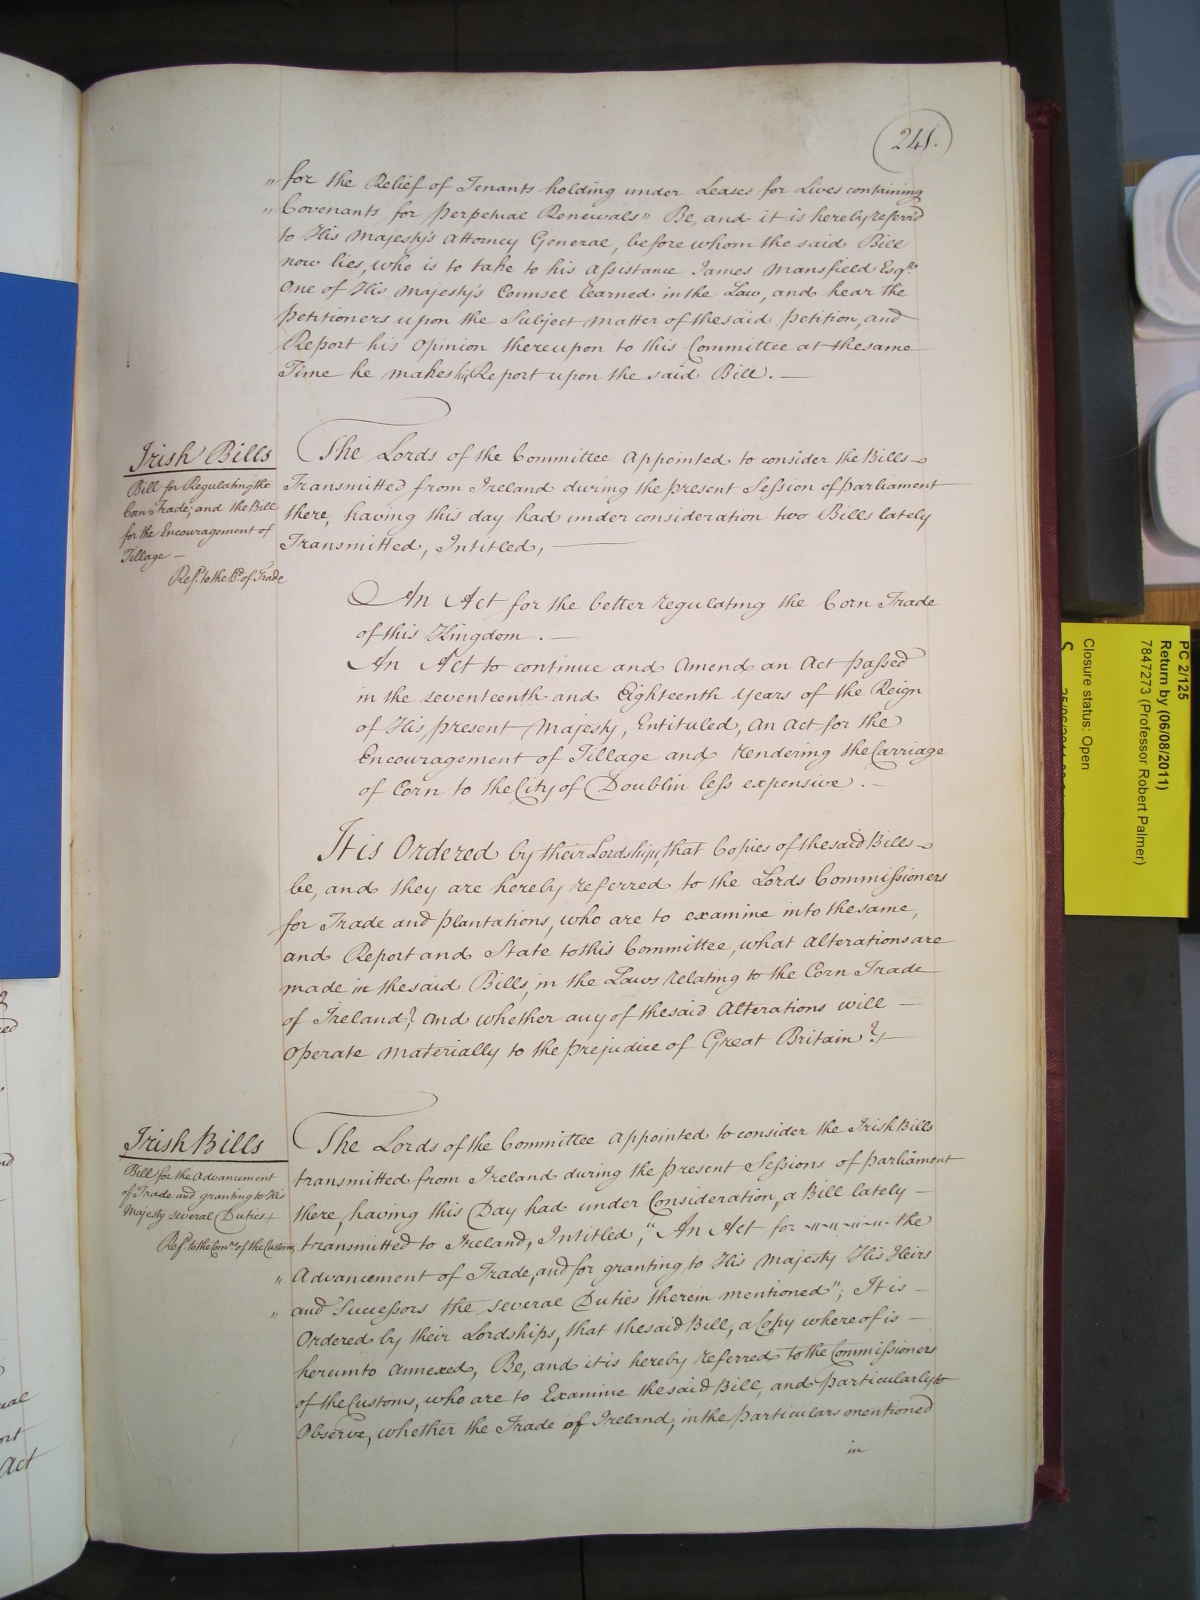 241.
" for the Relief of Tenants holding under Leases for Lives containing
" Covenants for perpetual Renewals" Be, and it is hereby referred
to His Majesty's Attorney General, before whom the said Bill
now lies, who is to take to his Assistance James Mansfield Esqr.
One of His Majesty's Counsel learned in the Law, and hear the
Petitioners upon the Subject matter of the said Petition, and
Report his Opinion thereupon to this Committee at the same
Time he makes his Report upon the said Bill. —
Irish Bills
Bill for Regulating the
Corn Trade; and the Bill
for the Encouragement of
Tillage —
Refd. to the Bd. of Trade
The Lords of the Committee Appointed to consider the Bills
Transmitted from Ireland during the present Session of Parliament
there, having this day had under consideration two Bills lately
Transmitted, Intitled, —
An Act for the better regulating the Corn Trade
of this Kingdom. —
An Act to continue and Amend an Act passed
in the seventeenth and Eighteenth Years of the Reign
of His present Majesty, Entituled, An Act for the
Encouragement of Tillage and rendering the Carriage
of Corn to the City of Doublin less expensive. —
It is Ordered by their Lordships, that Copies of the said Bills
be, and they are hereby referred to the Lords Commissioners
for Trade and Plantations, who are to examine into the same,
and Report and State to this Committee, what Alterations are
made in the said Bills, in the Laws relating to the Corn Trade
of Ireland? and whether any of the said Alterations will —
Operate materially to the prejudice of Great Britain? —
Irish Bills
Bill for the Advancement
of Trade and granting to His
Majesty several Duties.
Refd. to the Comrs. of the Customs
The Lords of the Committee Appointed to consider the Irish Bills
transmitted from Ireland during the present Sessions of Parliament
there, having this Day had under Consideration, a Bill lately —
transmitted to Ireland, Intitled, "An Act for the
" Advancement of Trade, and for granting to His Majesty His Heirs
" and Successors the several Duties therein mentioned"; It is —
Ordered by their Lordships, that the said Bill, a Copy whereof is —
hereunto Annexed, Be, and it is hereby referred to the Commissioners
of the Customs, who are to Examine the said Bill, and particularly to
Observe, whether the Trade of Ireland, in the particulars mentioned
in
PC 2/125
Return by (06/08/2011)
7847273 (Professor Robert Palmer)
Closure status: Open
S
ual
Act